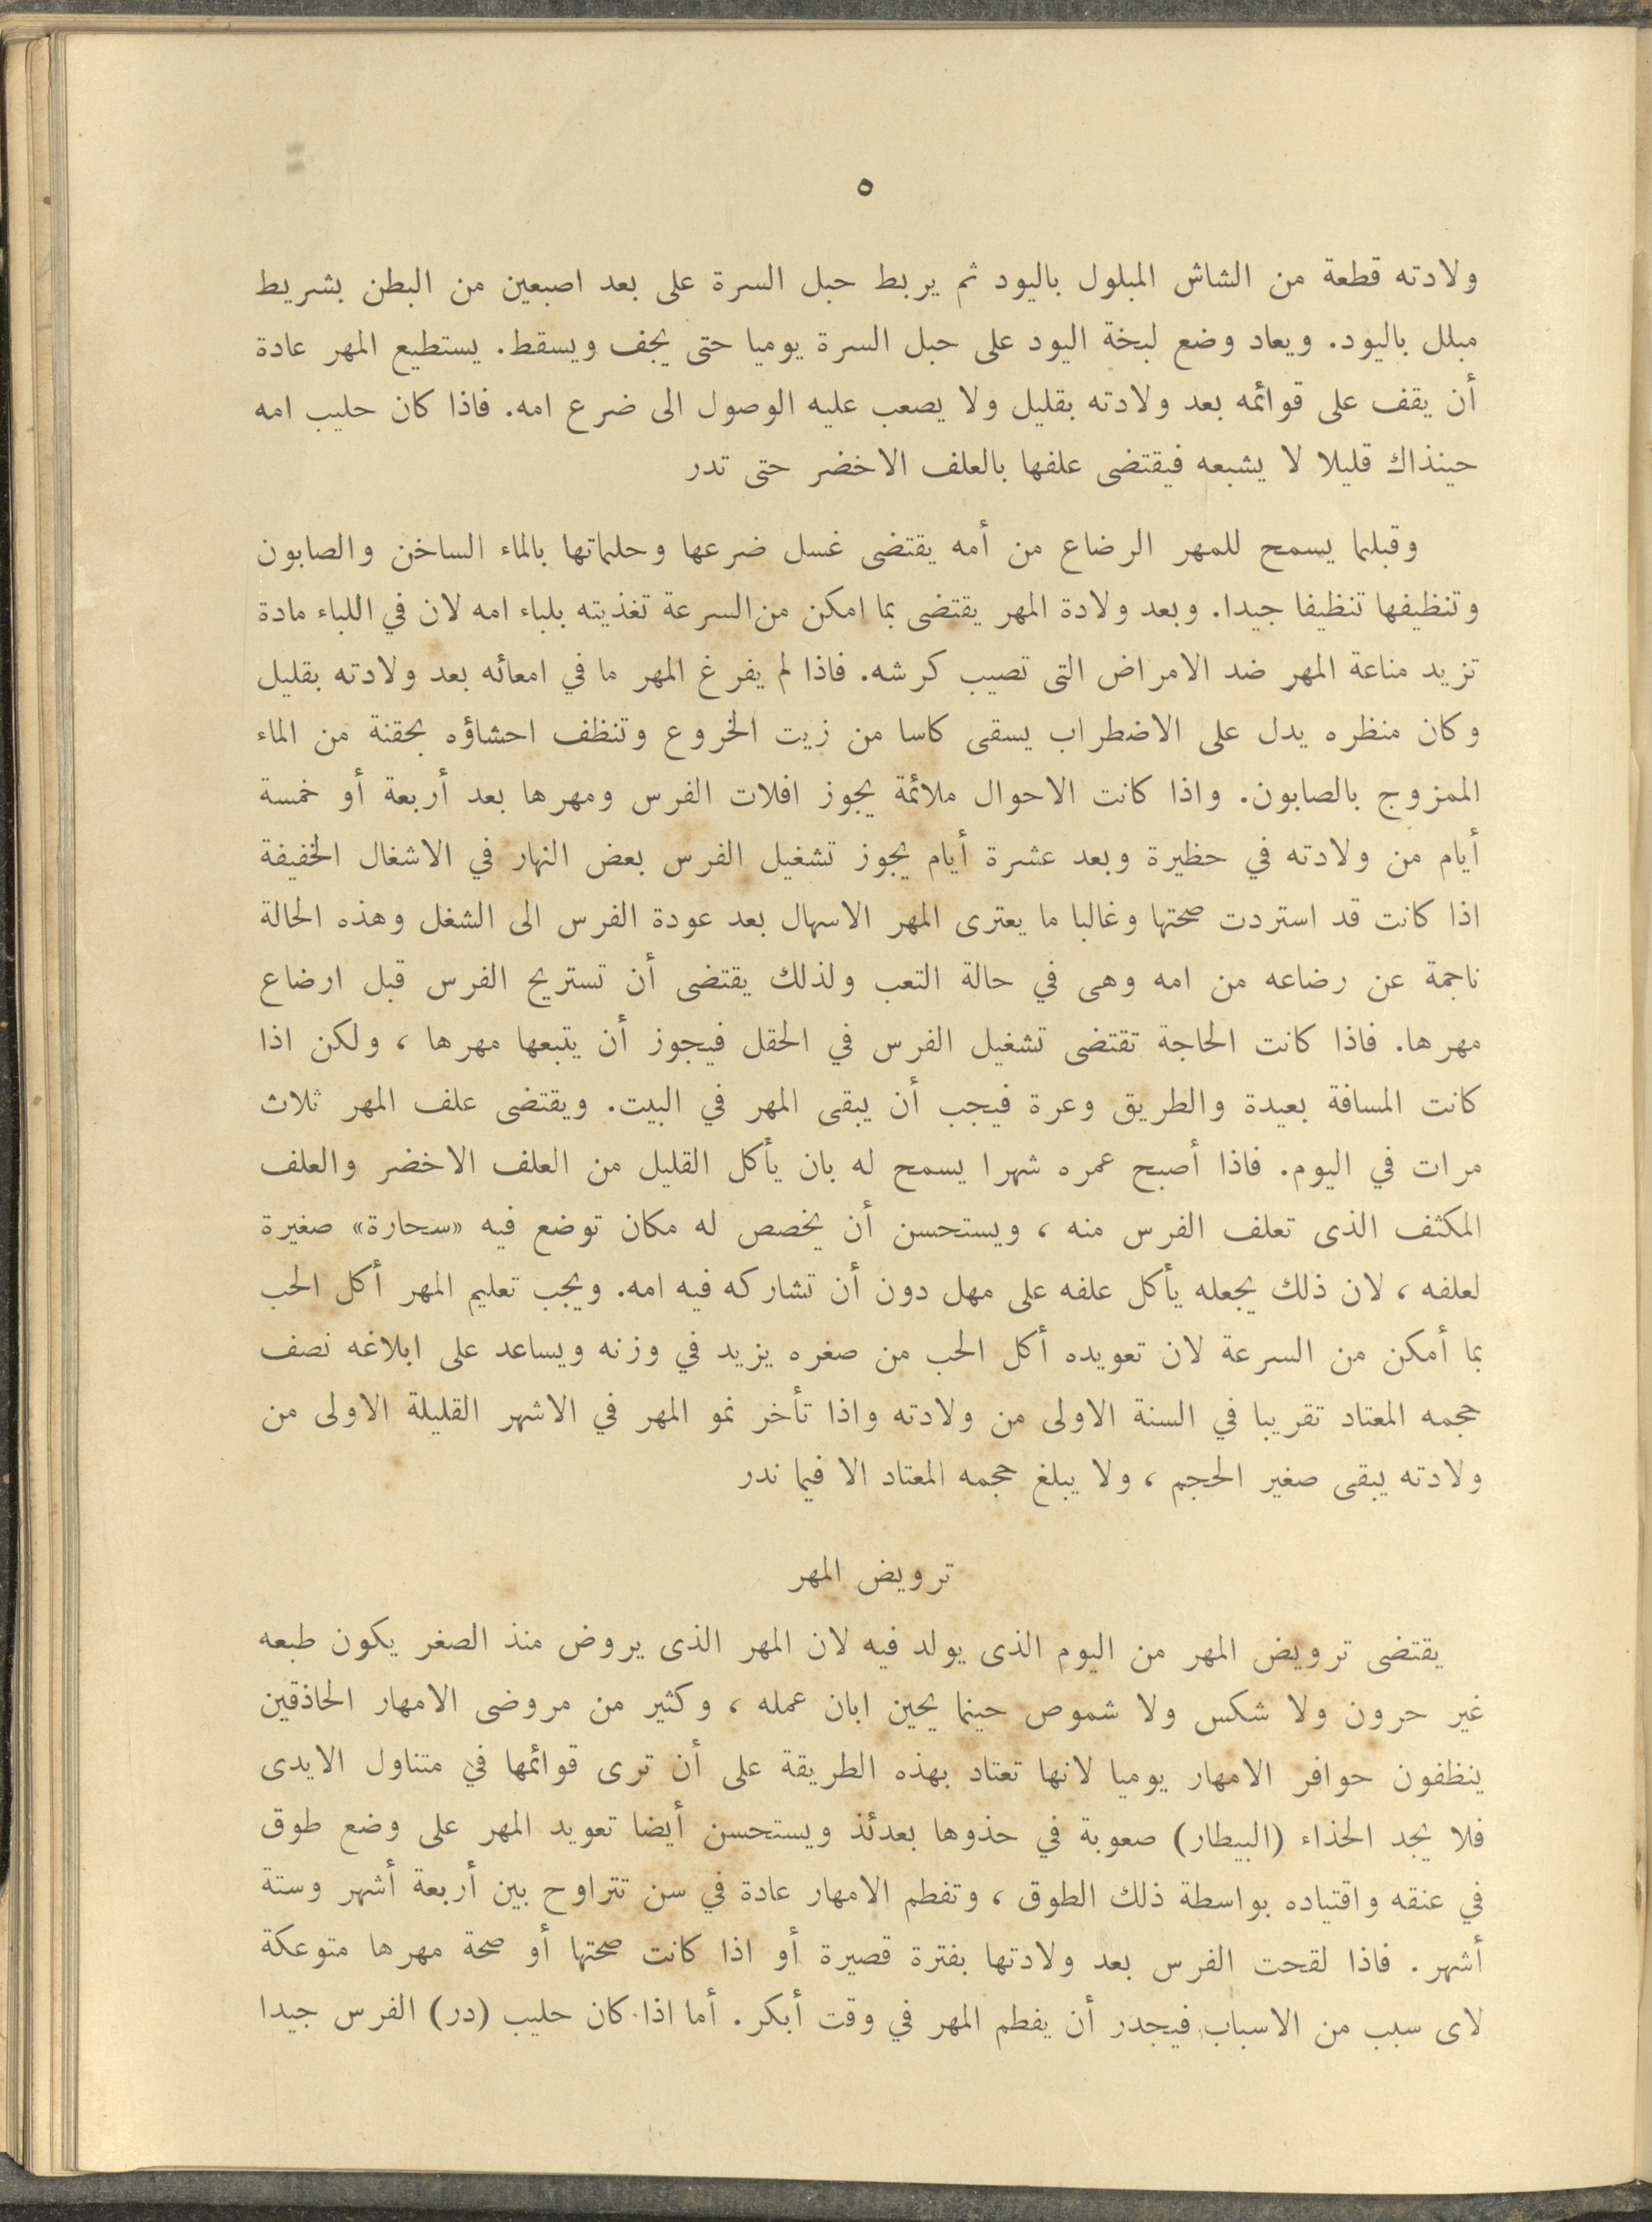 ٥
ولادته قطعة من الشاش المبلول باليود ثم يربط حبل السرة على بعد اصبعين من البطن بشريط
مبلل باليود. ويعاد وضع لبخة اليود على حبل السرة يوميا حتى يجف ويسقط. يستطيع المهر عادة
أن يقف على قوائمه بعد ولادته بقليل ولا يصعب عليه الوصول الى ضرع امه. فاذا كان حليب امه
حينذاك قليلا لا يشبعه فيقتضى علفها بالعلف الاخضر حتى تدر
وقبلما يسمح للمهر الرضاع من أمه يقتضى غسل ضرعها وحلماتها بالماء الساخن والصابون
وتنظيفها تنظيفا جيدا. وبعد ولادة المهر يقتضى بما امكن من السرعة تغذيته بلباء امه لان في اللباء مادة
تزيد مناعة المهر ضد الامراض التى تصيب كرشه. فاذا لم يفرغ المهر ما في امعائه بعد ولادته بقليل
وكان منظره يدل على الاضطراب يسقى كاسا من زيت الخروع وتنظف احشاؤه بحقنة من الماء
الممزوج بالصابون. واذا كانت الاحوال ملائمة يجوز افلات الفرس ومهرها بعد أربعة أو خمسة
أيام من ولادته في حظيرة وبعد عشرة أيام يجوز تشغيل الفرس بعض النهار في الاشغال الخفيفة
اذا كانت قد استردت صحتها وغالبا ما يعترى المهر الاسهال بعد عودة الفرس الى الشغل وهذه الحالة
ناجمة عن رضاعه من امه وهى في حالة التعب ولذلك يقتضى أن تستريح الفرس قبل ارضاع
مهرها. فاذا كانت الحاجة تقتضى تشغيل الفرس في الحقل فيجوز أن يتبعها مهرها ، ولكن اذا
كانت المسافة بعيدة والطريق وعرة فيجب أن يبقى المهر في البيت. ويقتضى علف المهر ثلاث
مرات في اليوم. فاذا أصبح عمره شهرا يسمح له بان يأكل القليل من العلف الاخضر والعلف
المكثف الذى تعلف الفرس منه ، ويستحسن أن يخصص له مكان توضع فيه «سحارة» صغيرة
لعلفه ، لان ذلك يجعله يأكل علفه على مهل دون أن تشاركه فيه امه. ويجب تعليم المهر أكل الحب
بما أمكن من السرعة لان تعويده أكل الحب من صغره يزيد في وزنه ويساعد على ابلاغه نصف
حجمه المعتاد تقريبا في السنة الاولى من ولادته واذا تأخر نمو المهر في الاشهر القليلة الاولى من
ولادته يبقى صغير الحجم ، ولا يبلغ حجمه المعتاد الا فيما ندر
ترويض المهر
يقتضى ترويض المهر من اليوم الذى يولد فيه لان المهر الذى يروض منذ الصغر يكون طبعه
غير حرون ولا شكس ولا شموص حينما يحين ابان عمله ، وكثير من مروضى الامهار الحاذقين
ينظفون حوافر الامهار يوميا لانها تعتاد بهذه الطريقة على أن ترى قوائمها في متناول الايدى
فلا يجد الحذاء (البيطار) صعوبة في حذوها بعدئذ ويستحسن أيضا تعويد المهر على وضع طوق
في عنقه واقتياده بواسطة ذلك الطوق ، وتفطم الامهار عادة في سن تتراوح بين أربعة أشهر وستة
أشهر. فاذا لقحت الفرس بعد ولادتها بفترة قصيرة أو اذا كانت صحتها أو صحة مهرها متوعكة
لاى سبب من الاسباب فيجدر أن يفطم المهر في وقت أبكر. أما اذا كان حليب (در) الفرس جيدا